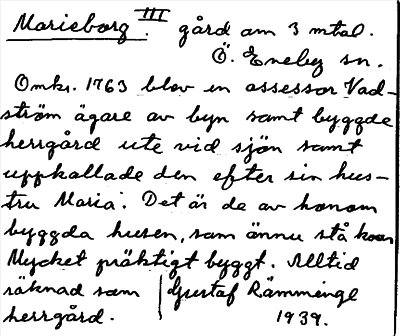 Marieborg. III gård om 3 mtal.
Ö. Eneby sn.
Omkr. 1763 blev en assessor Vad-
ström ägare av byn samt byggde
herrgård ute vid sjön samt
uppkallade den efter sin hus-
tru Maria. Det är de av honom
byggda husen, som ännu stå kvar.
Mycket präktigt byggt. Alltid
räknad som
herrgård.
Gustaf Rämminge
1939.